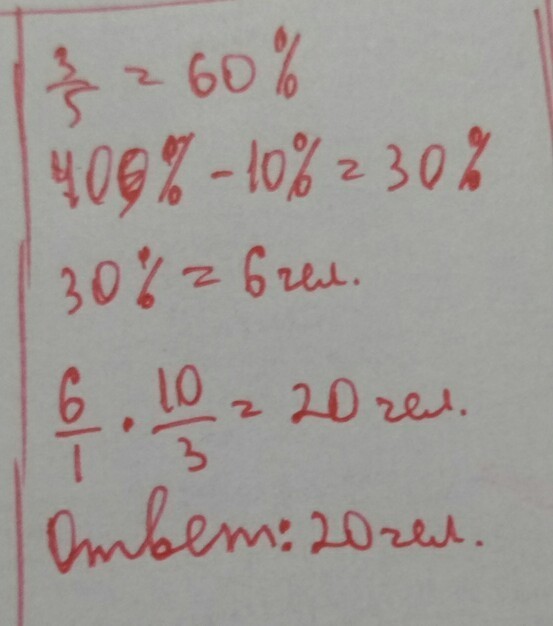 3/5 = 60%
40% - 10% = 30%
30% = 6 чел.
6/1 · 10/3 = 20 чел.
Ответ: 20 чел.